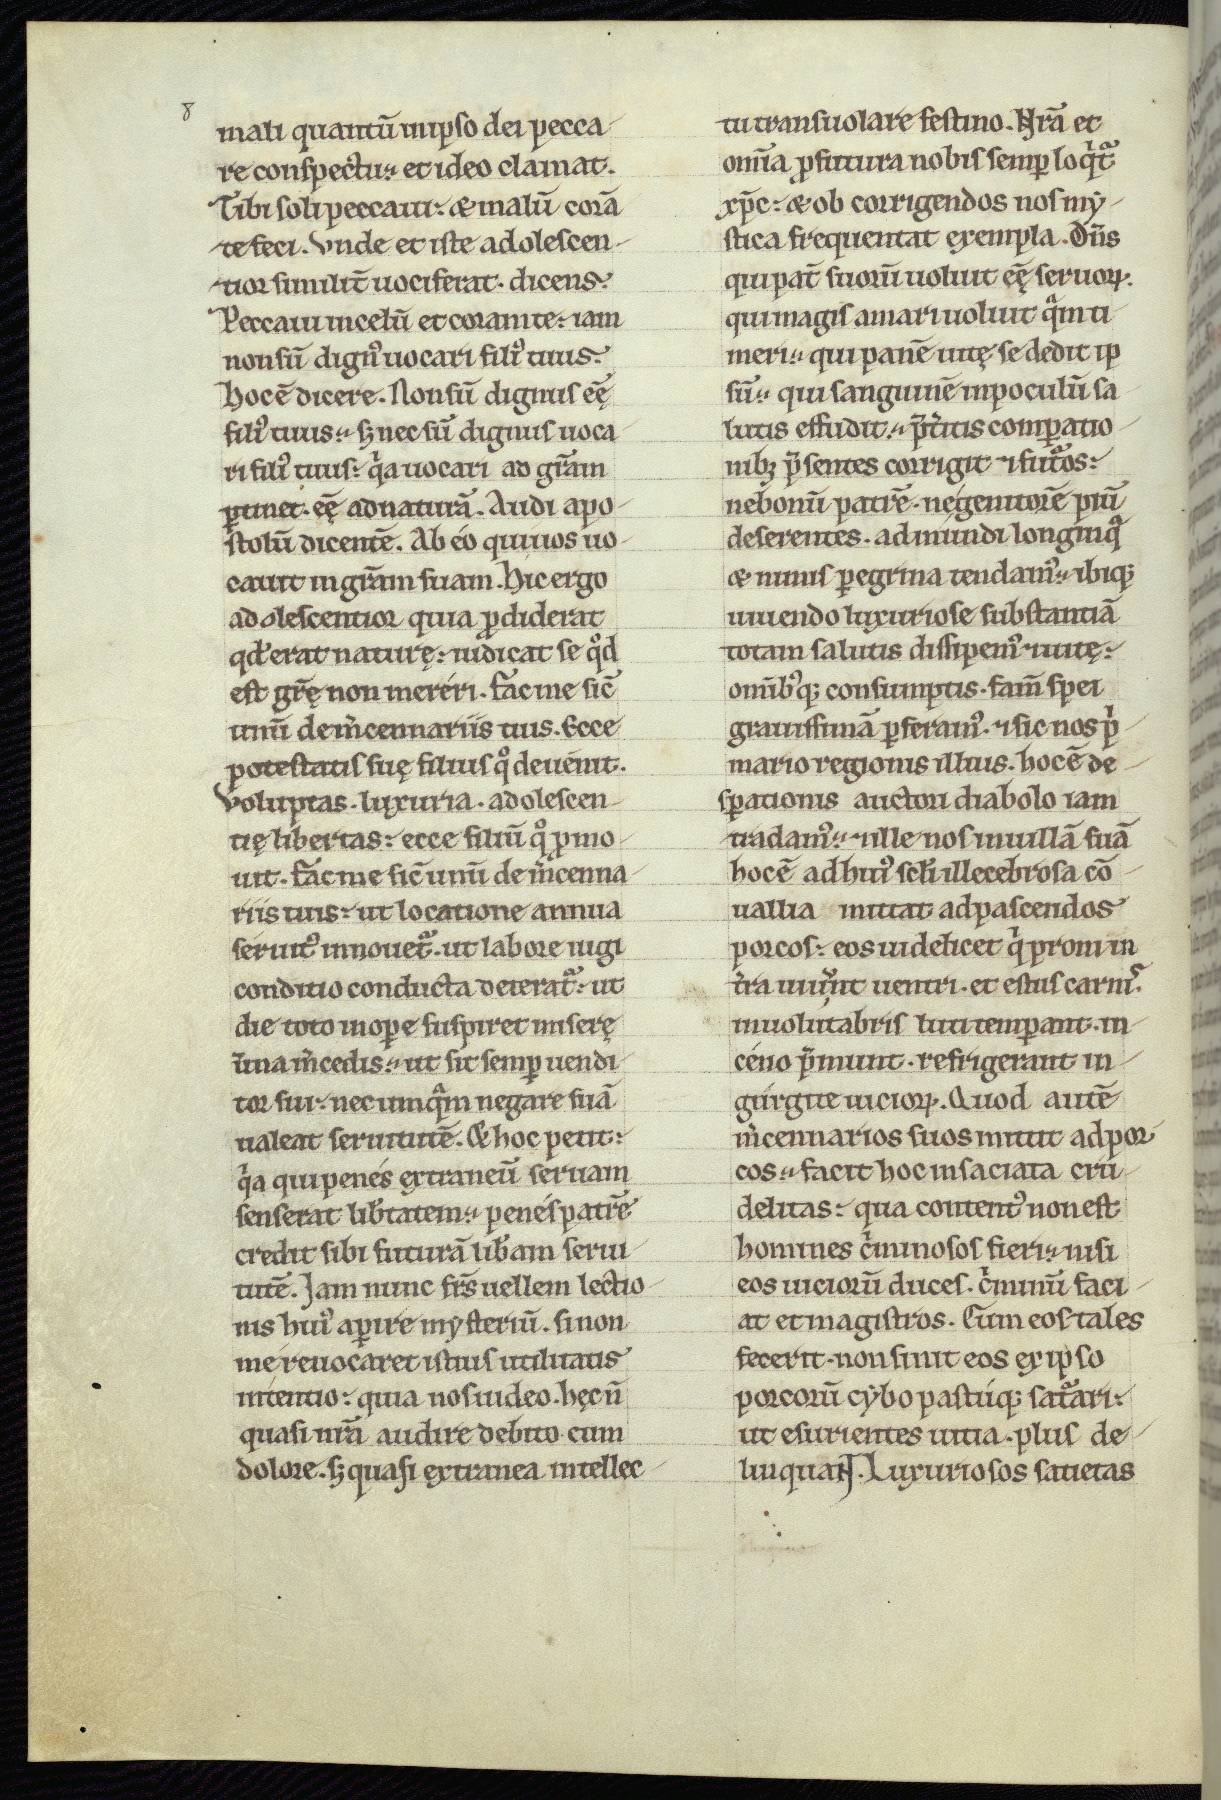 8
mali quantū in ipso dei pecca-
re conspectu. et ideo clamat.
Tibi soli peccaui: & malū corā
te feci. Vnde et iste adolescen-
tior similit̄ uociferat. dicens:
Peccaui in celū et coram te: iam
non sū dign᾽ uocari fili᾽ tuus:
Hoc ē dicere. Non sū dignus eē
fili᾽ tuus: sꝫ nec sū dignus uoca
ri fili᾽ tuus: qͥa uocari ad gr̄am
ꝑtinet. eē ad naturā. Audi apo-
stolū dicentē. Ab eo qui uos uo-
cauit in gr̄am suam. Hic ergo
adolescentior quia ꝑdiderat
qđ erat naturę: iudicat se qͦd
est gr̄ę non mereri. Fac me sic̄
unū de m̄cennariis tuis. Ecce
potestatis suę filius qͦ deuenit.
Voluptas. luxuria. adolescen-
tię libertas: ecce filiū qͦ ꝓmo-
uit. Fac me sic̄ unū de m̄cenna-
riis tuis: ut locatione annua
seruit᾽ innouet᷑. ut labore iugi
conditio conducta deterat᷑: ut
die toto inope suspiret miserę
una m̄cedis: ut sit semꝑ uendi-
tor sui: nec umqͣm negare suā
ualeat seruitutē. & hoc petit:
qͥa qui penes extraneū seruam
senserat lib̄tatem: penes patrē
credit sibi futurā lib̄am serui-
tutē. Iam nunc fr̄s uellem lectio-
nis hui᾽ aꝑire mysteriū. si non
me reuocaret istius utilitatis
intentio: quia nos uideo. hęc ū
quasi nr̄a audire debito cum
dolore. sꝫ quasi extranea intellec-
tu transuolare festino. Nr̄a et
om̄ia ꝓfutura nobis semꝑ loqͥt᷑
xp̄c: & ob corrigendos nos my-
stica frequentat exempla. Dn̄s
qui pat̄ suorū uoluit eē seruoꝝ.
qui magis amari uoluit qͣm ti
meri: qui panē uitę se dedit ip
sū: qui sanguinē in poculū sa
lutis effudit: p̄t̄itis comꝑatio-
nibꝫ p̄sentes corrigit ⁊ fut᷑os:
ne bonū patrē. ne genitorē piū
deserentes. ad mundi longinqͣ
& nimis ꝑegrina tendam᾽: ibiqꝫ
uiuendo luxuriose substantiā
totam salutis dissipem᾽ ⁊ uitę:
om̄ib᾽qꝫ consumptis. fam̄ spei
grauissimā ꝑferam᾽. ⁊ sic nos pͥ
mario regionis illius. hoc ē de-
sꝑationis auctori diabolo iam
tradam᾽: ⁊ ille nos in uillā suā
hoc ē ad hui᾽ scl̄i illecebrosa cō-
uallia mittat ad pascendos
porcos: eos uidelicet qͥ proni in
t̄ra uiuūt uentri. et estus carnis
in uolutabris luti temperant. in
ceno p̄munt. refrigerant in
gurgite uicioꝝ. Quod autē
m̄cennarios suos mittit ad por-
cos: facit hoc insaciata cru-
delitas: qua content᾽ non est
homines cͥminosos fieri: nisi
eos uiciorū duces. cͥminū faci-
at et magistros. Cum eos tales
fecerit. non sinit eos ex ipso
porcorū cybo pastuqꝫ sat᷑ari:
ut esurientes uitia. plus de-
linquant. Luxuriosos satietas